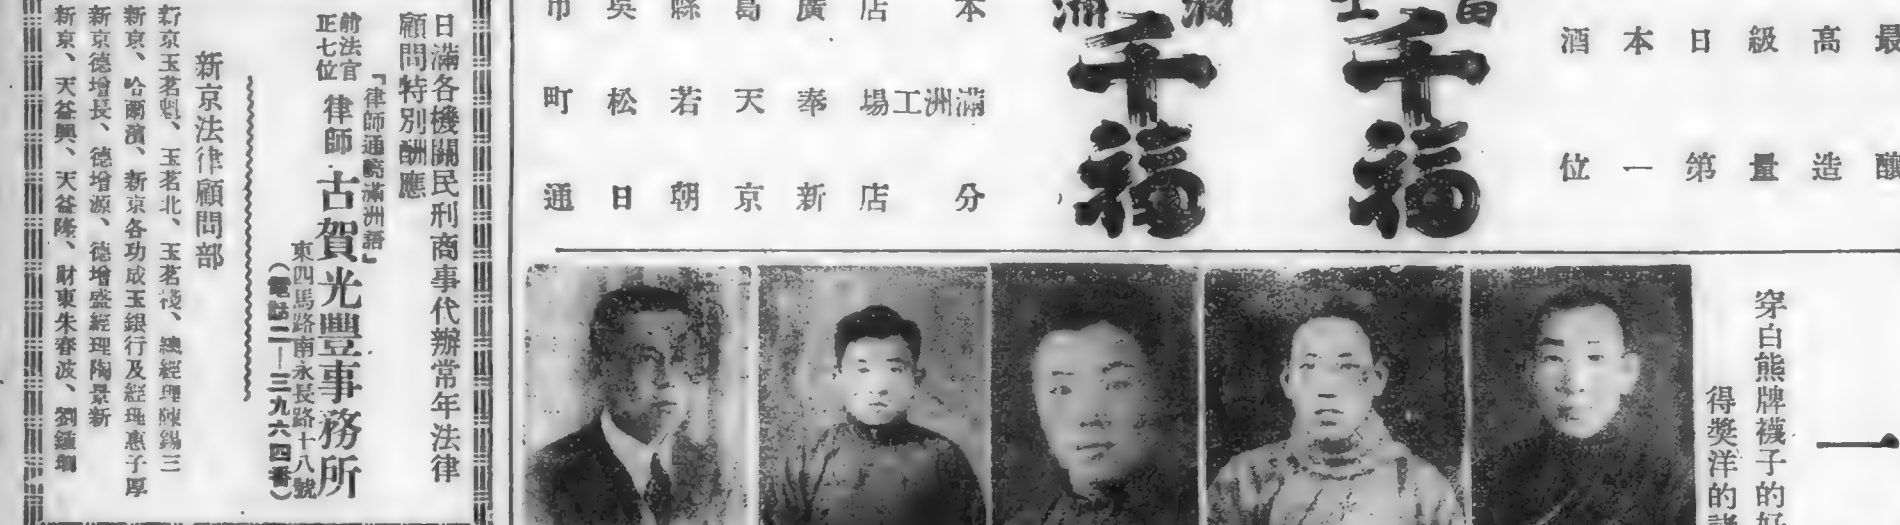 最高級日本酒
釀造量第一位
千福
千福
本店 廣島縣吳市
滿洲工場 奉天若松町
分店 新京朝日通
一
穿白熊牌襪子的好
得獎洋的諸
日滿各機關民刑商事代辦常年法律
顧問特別酬應
「律師通曉滿洲語」
前法官
正七位
律師 古賀光豐事務所
東四馬路南永長路十八號
（電話二—三九六四番）
新京法律顧問部
新京玉茗魁、玉茗北、玉茗棧、總經理陳錫三
新京、哈爾濱、新京各功成玉銀行及經理惠子厚
新京德增長、德增源、德增盛經理陶景新
新京、天益興、天益隆、財東朱春波、劉鍾